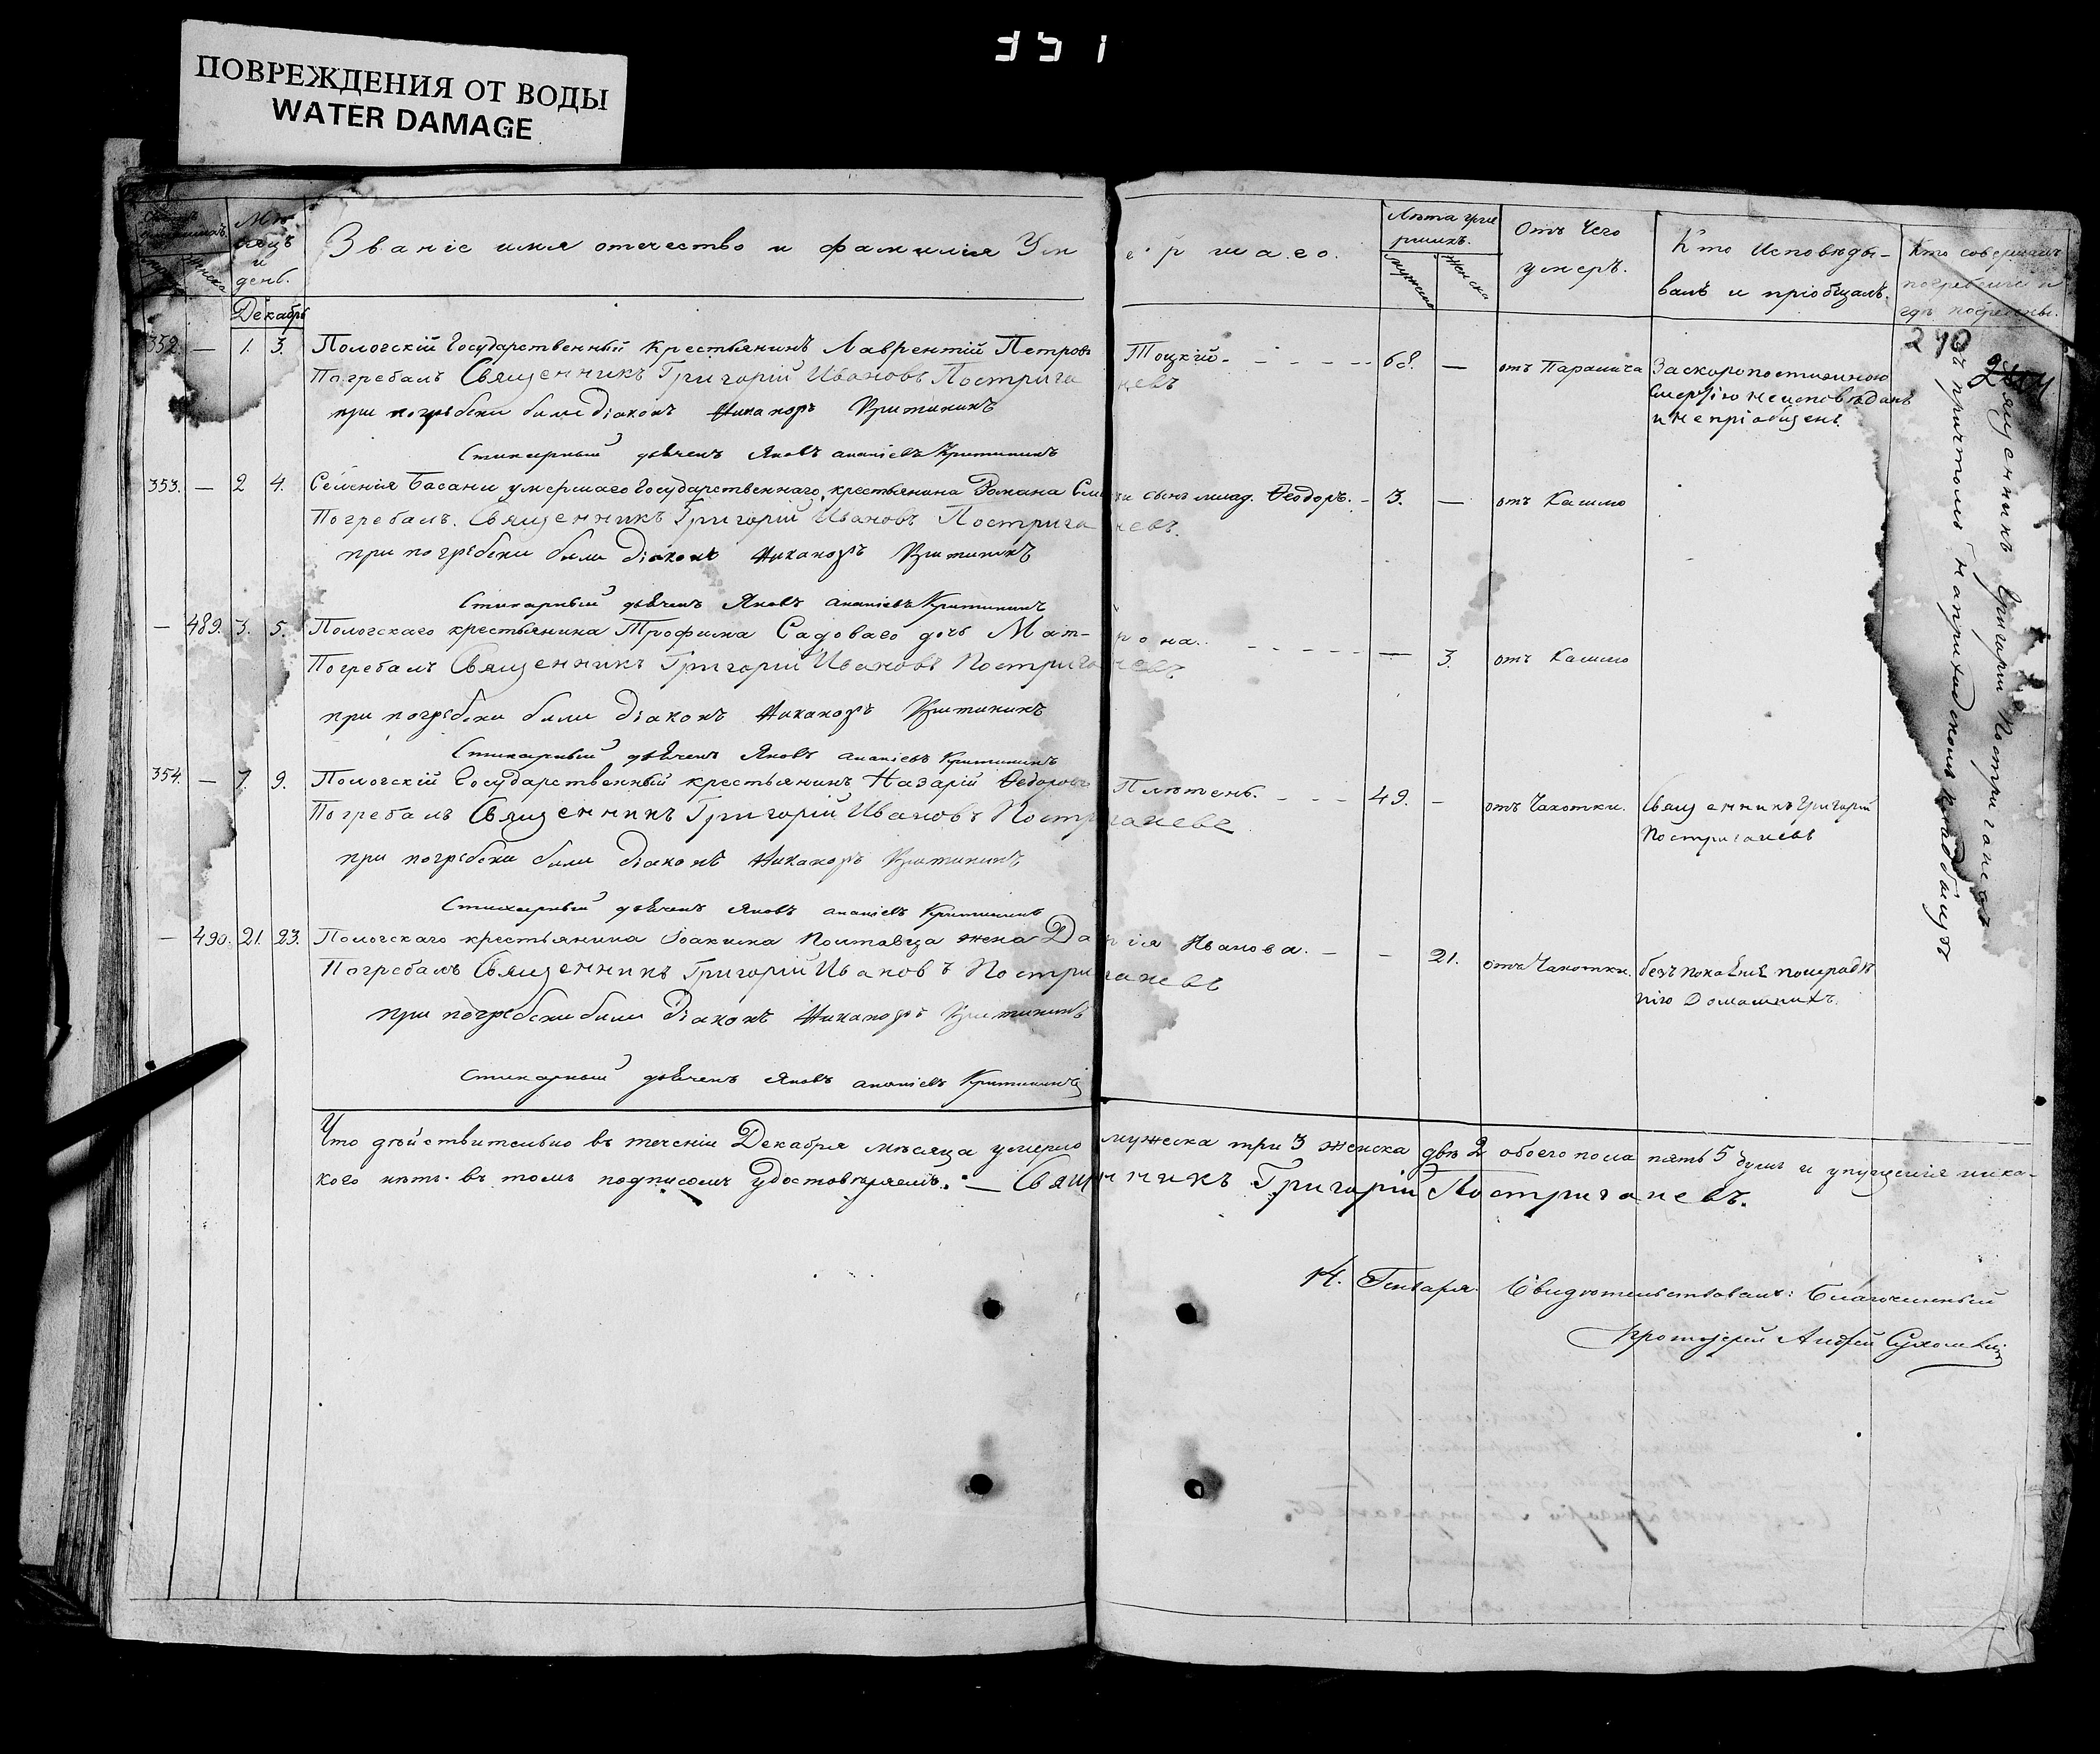 351
ПОВРЕЖДЕНИЯ ОТ ВОДЫ
WATER DAMAGE
Мѣсяцъ и день.
Званіе имя отечество и фамилія Умершаго.
Лѣта умершихъ.
мужеска
женска
Отъ Чего умеръ.
Кто Исповѣдывалъ и пріобщалъ.
Кто совершалъ погребеніе и гдѣ погребены.
Декабрь
240
352. — 1. 3. Пологскій Государственный крестьянинъ Лаврентій Петровъ Тоцкій. - - - - 68. — отъ Паралича За скоропостижною
смертію неисповѣданъ
и непріобщенъ
Погребалъ Священникъ Григорій Ивановъ Постриганевъ
при погребеніи были Діаконъ Никаноръ Критининъ
Стихарный дьячекъ Яковъ Ананіевъ Критининъ
353. — 2 4. умершаго Государственнаго крестьянина Романа сынъ млад. Ѳеодоръ. - 3. — отъ Кашлю
Погребалъ. Священникъ Григорій Ивановъ Постриганевъ.
при погребеніи были Діаконъ Никаноръ Критининъ
Стихарный дьячекъ Яковъ Ананіевъ Критининъ
— 489. 3. 5. Пологскаго крестьянина Трофима Садоваго дочь Матрона. - - - - - — 3. отъ Кашлю
Погребалъ Священникъ Григорій Ивановъ Постриганевъ
при погребеніи были Діаконъ Никаноръ Критининъ
Стихарный дьячекъ Яковъ Ананіевъ Критининъ
354. — 7. 9. Пологскій Государственный крестьянинъ Назарій Ѳедоровъ Плѣтень. - - - 49. - отъ Чахотки. Священникъ Григорій
Постриганевъ
Погребалъ Священникъ Григорій Ивановъ Постриганевъ
при погребеніи были Діаконъ Никаноръ Критининъ
Стихарный дьячекъ Яковъ Ананіевъ Критининъ
— 490. 21. 23. Пологскаго крестьянина Іоакима Полтавца жена Дарія Иванова. — - 21. отъ Чахотки. безъ покаянія понерадѣ
нію Домашнихъ.
Погребалъ Священникъ Григорій Ивановъ Постриганевъ
при погребеніи были Діаконъ Никаноръ Критининъ
Стихарный дьячекъ Яковъ Ананіевъ Критининъ
Священникъ Григорій Постриганевъ
съ причтомъ на приходскомъ кладбищѣ
Что дѣйствительно въ теченіи Декабря мѣсяца умерло мужеска три 3 женска двѣ 2 обоего пола пять 5 душъ и упущенія ника-
кого нѣтъ въ томъ подписомъ удостовѣряемъ. — Священникъ Григорій Постриганевъ.
14. Генваря. Свидѣтельствовалъ: Благочинный
протоіерей Андрей